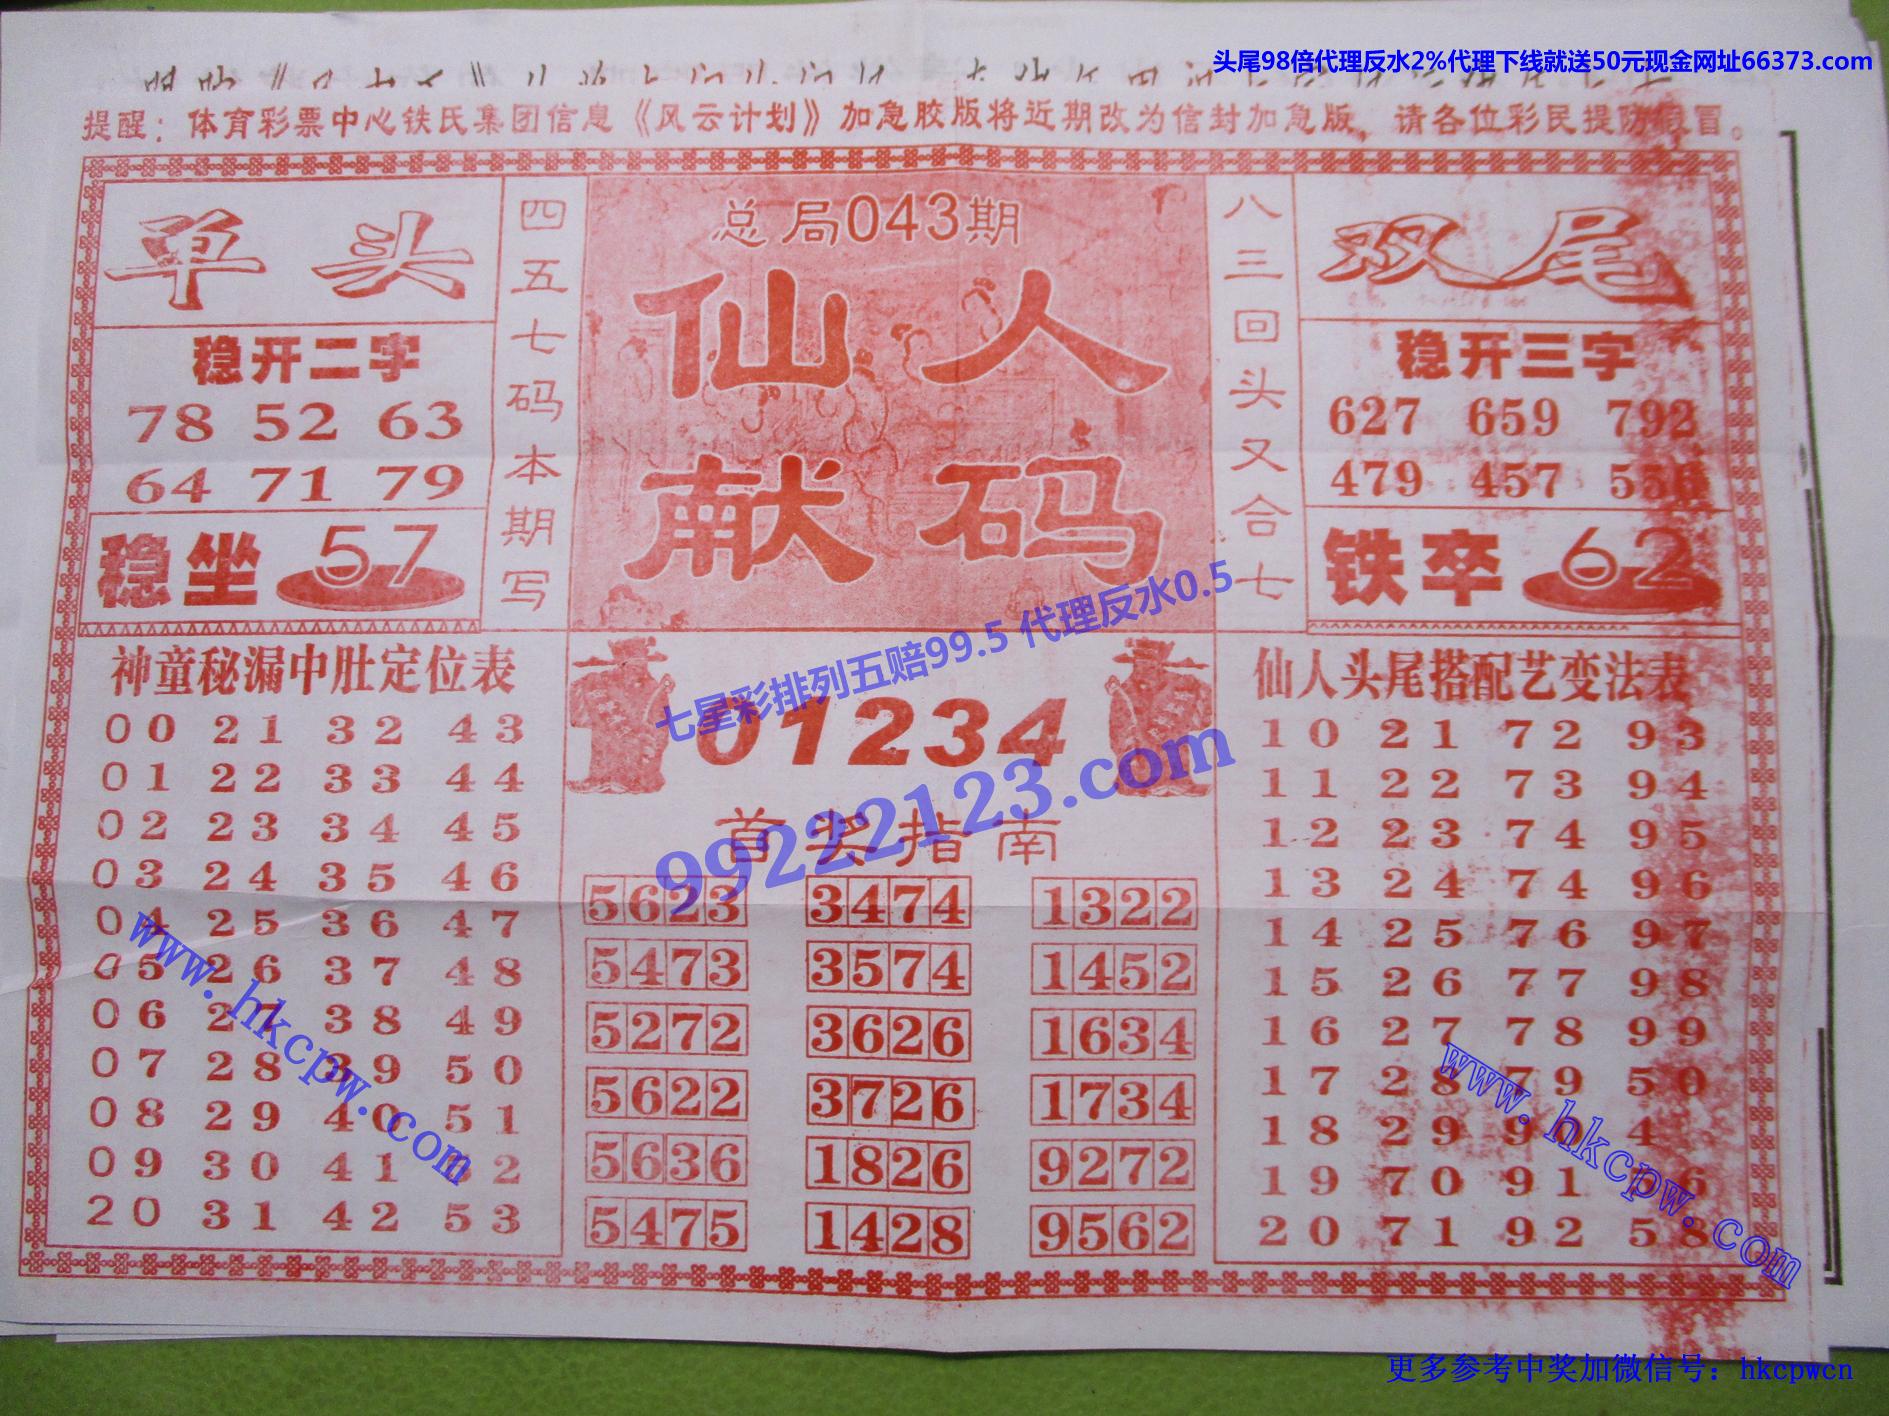 头尾98倍代理反水2%代理下线就送50元现金网址66373.com
提醒：体育彩票中心铁氏集团信息《风云计划》加急胶版将近期改为信封加急版，请各位彩民提防假冒。
单头
稳开二字
78 52 63
64 71 79
稳坐 57
四五七码本期写
总局043期
仙人
献码
八三回头又合七
双尾
稳开三字
627 659 792
479 457 556
铁卒 62
神童秘漏中肚定位表
00 21 32 43
01 22 33 44
02 23 34 45
03 24 35 46
04 25 36 47
05 26 37 48
06 27 38 49
07 28 39 50
08 29 40 51
09 30 41 52
20 31 42 53
七星彩排列五赔99.5 代理反水0.5
01234
99222123.com
首奖指南
5623 3474 1322
5473 3574 1452
5272 3626 1634
5622 3726 1734
5636 1826 9272
5475 1428 9562
仙人头尾搭配艺变法表
10 21 72 93
11 22 73 94
12 23 74 95
13 24 74 96
14 25 76 97
15 26 77 98
16 27 78 99
17 28 79 50
18 29 90 4
19 70 91 56
20 71 92 58
www.hkcpw.com
www.hkcpw.com
更多参考中奖加微信号：hkcpwcn